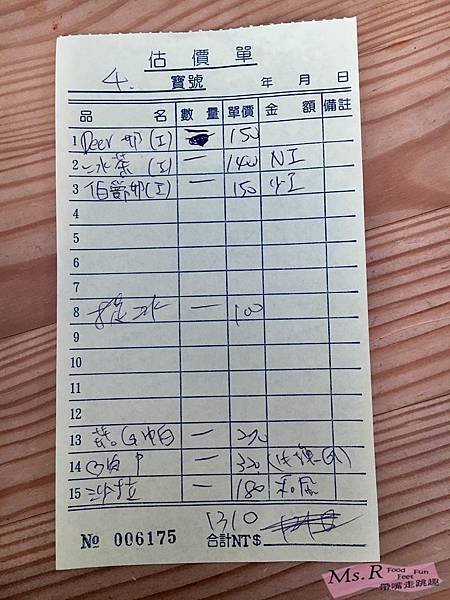 估價單
4. 寶號 年 月 日
品名 數量 單價 金額 備註
1 Deer 奶 (I) 150
2 冰茶 (I) 一 140 NI
3 伯爵奶(I) 一 150 少I
4
5
6
7
8 冰 一 100
9
10
11
12
13 一
14 一 320
15 沙拉 一 180 和風
1310
№ 006175 合計NT$
Ms.R Food Fun Feet
帶嘴走跳趣